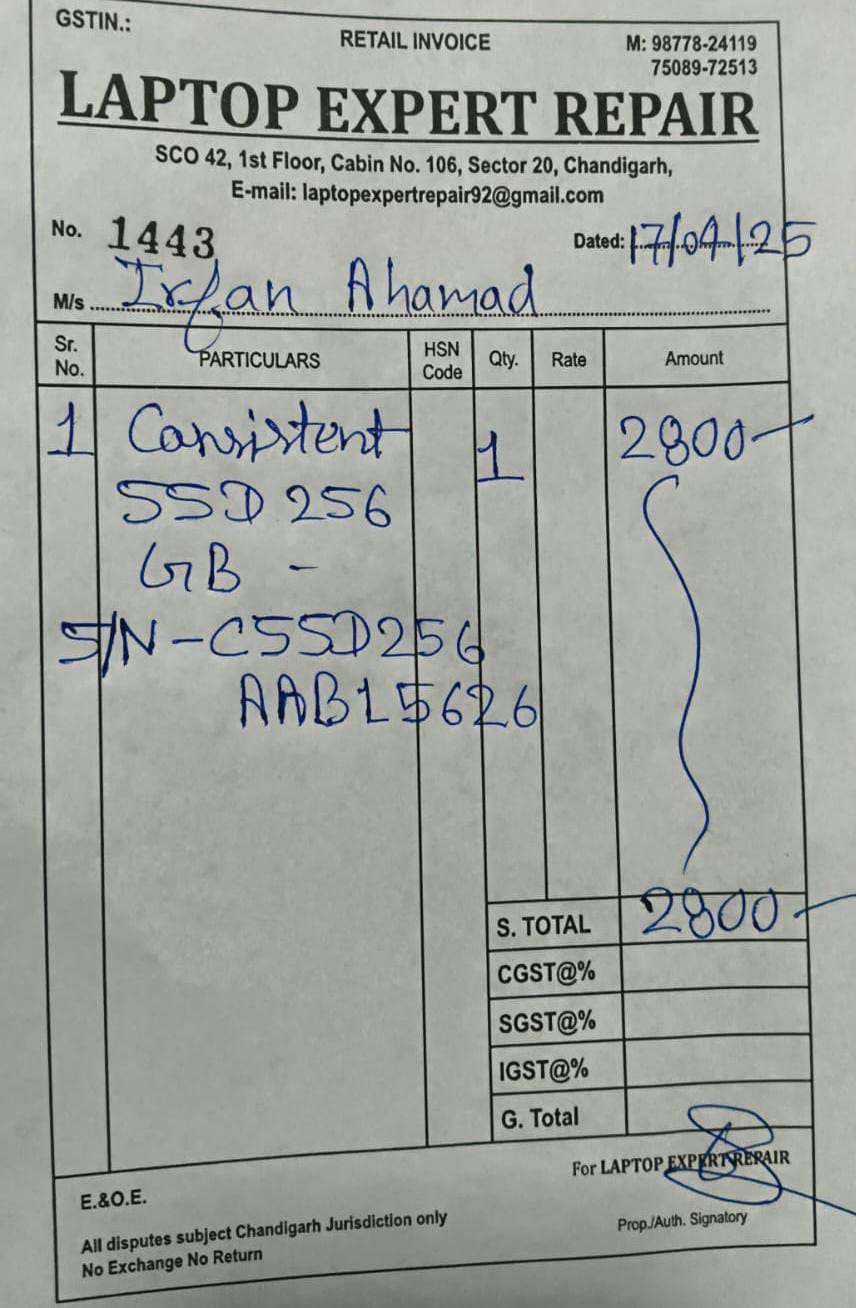 GSTIN.:
RETAIL INVOICE
M: 98778-24119
75089-72513
LAPTOP EXPERT REPAIR
SCO 42, 1st Floor, Cabin No. 106, Sector 20, Chandigarh,
E-mail: laptopexpertrepair92@gmail.com
No. 1443
Dated: 17/04/25
M/s Irfan Ahamad
Sr. No. PARTICULARS HSN Code Qty. Rate Amount
1 Consistent 1 2800
SSD 256
GB -
S/N-CSSD256
AAB15626
S. TOTAL 2800
CGST@%
SGST@%
IGST@%
G. Total
For LAPTOP EXPERT REPAIR
E.&O.E.
Prop./Auth. Signatory
All disputes subject Chandigarh Jurisdiction only
No Exchange No Return